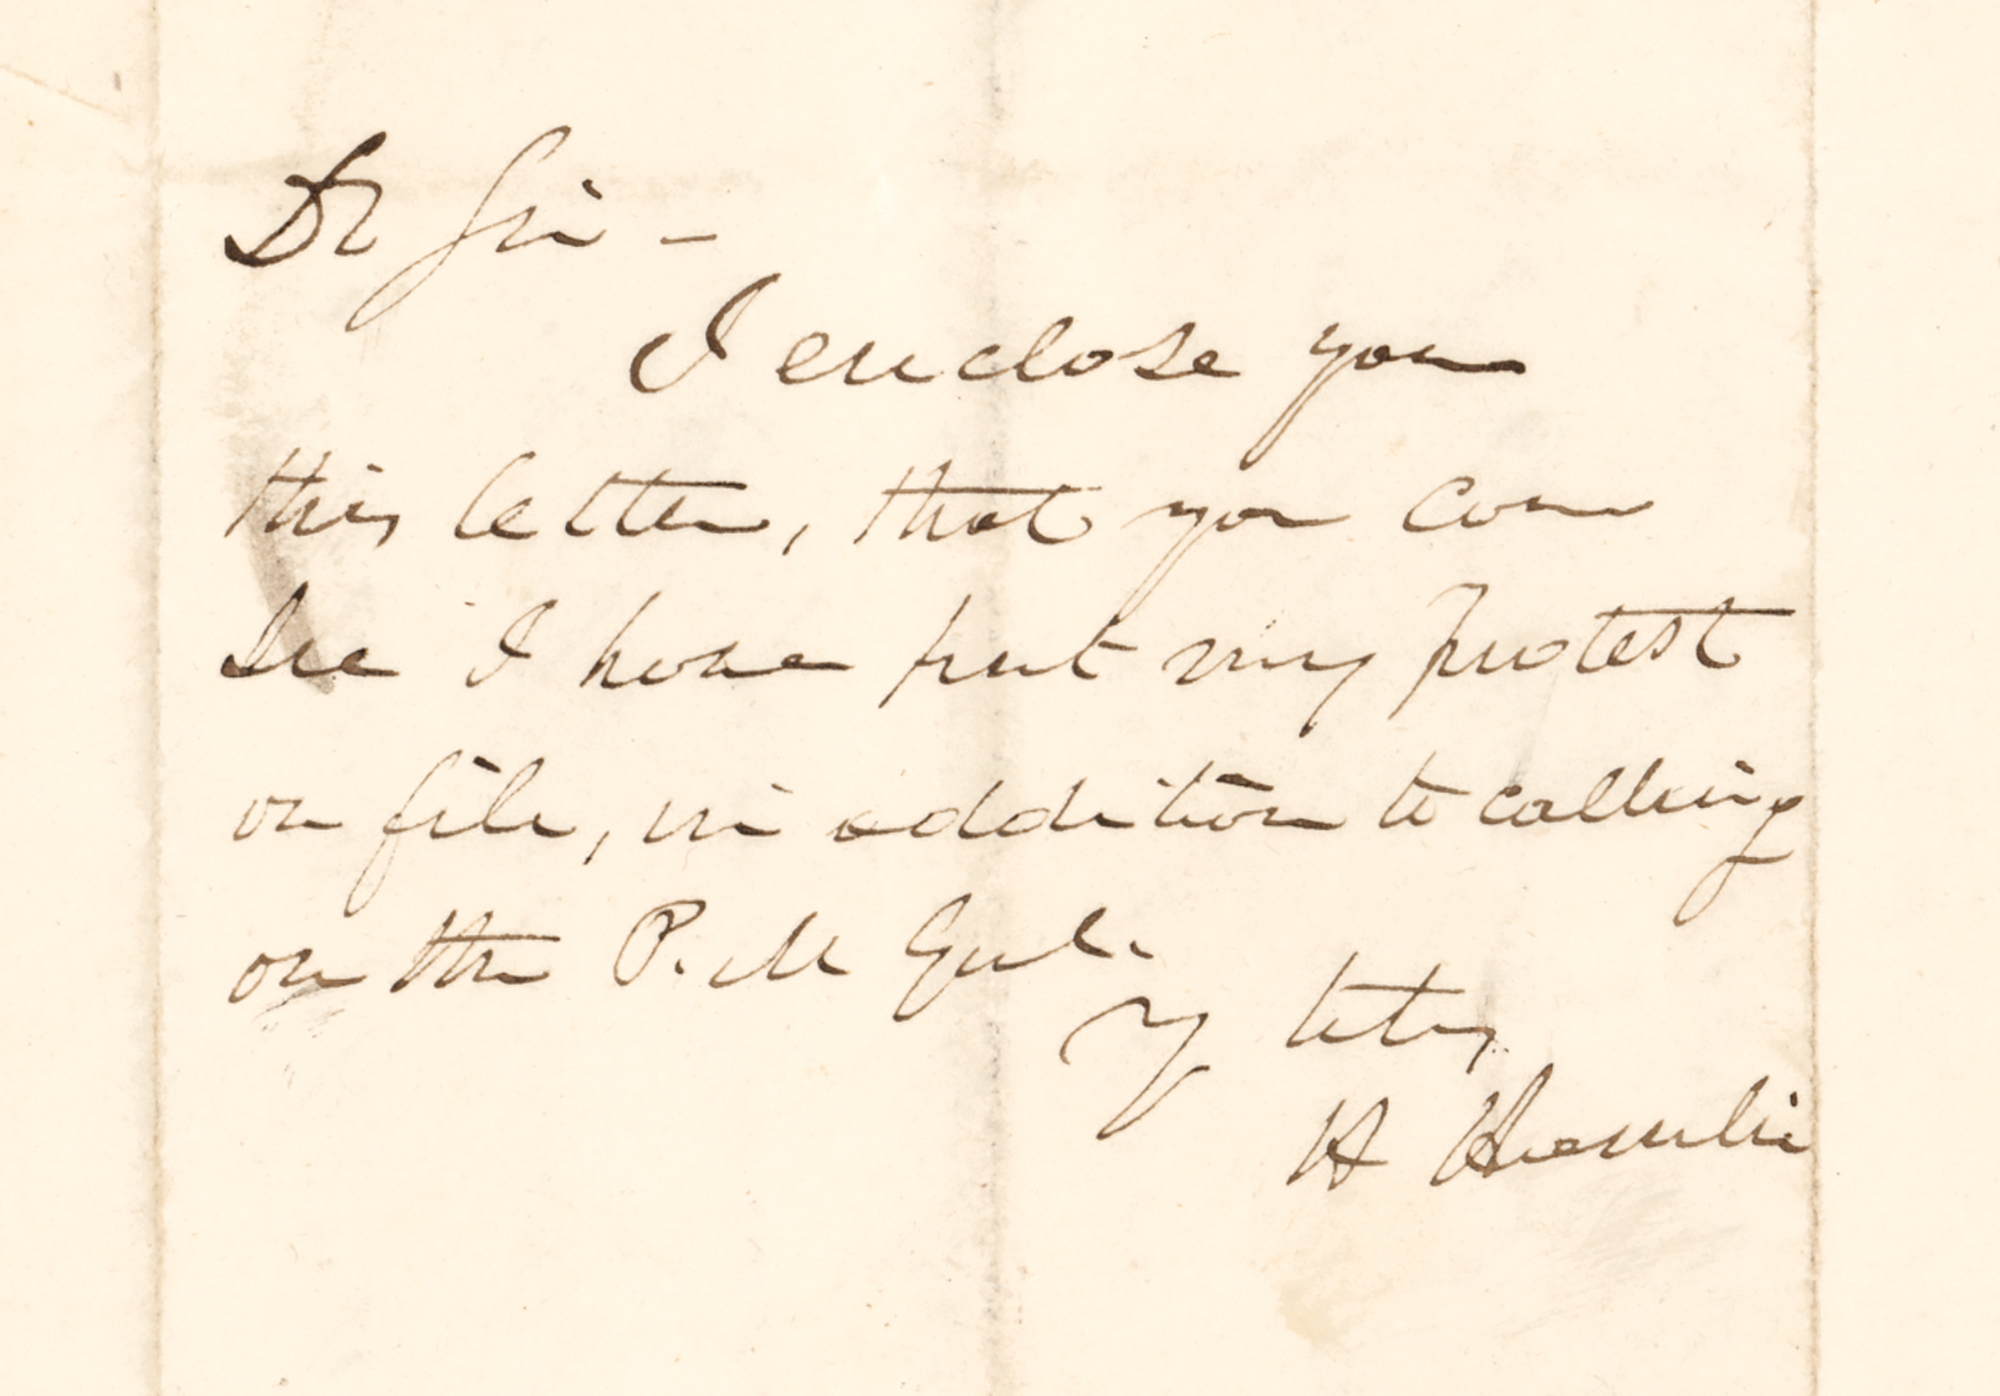 Dr Sir –
I enclose you
this letter, that you can
see I have put my protest
on file, in addition to calling
on the P. M Genl.
Y
H Hamlin